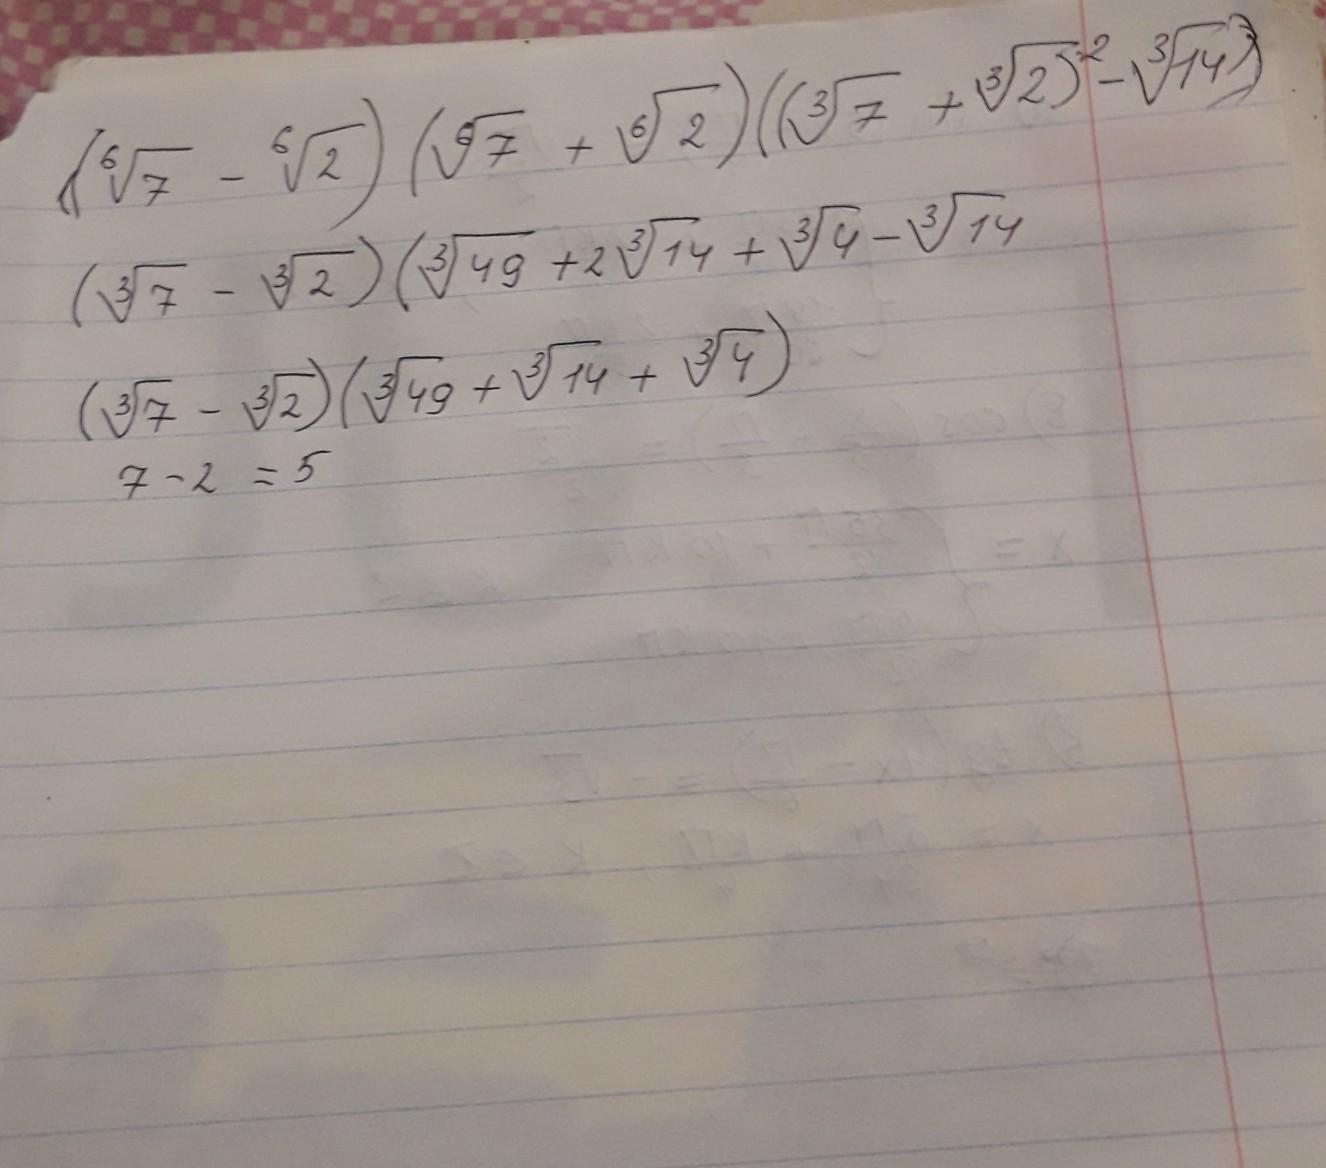 (⁶√7 - ⁶√2)(⁶√7 + ⁶√2)((³√7 + ³√2)² - ³√14)
(³√7 - ³√2)(³√49 + 2³√14 + ³√4 - ³√14
(³√7 - ³√2)(³√49 + ³√14 + ³√4)
7 - 2 = 5